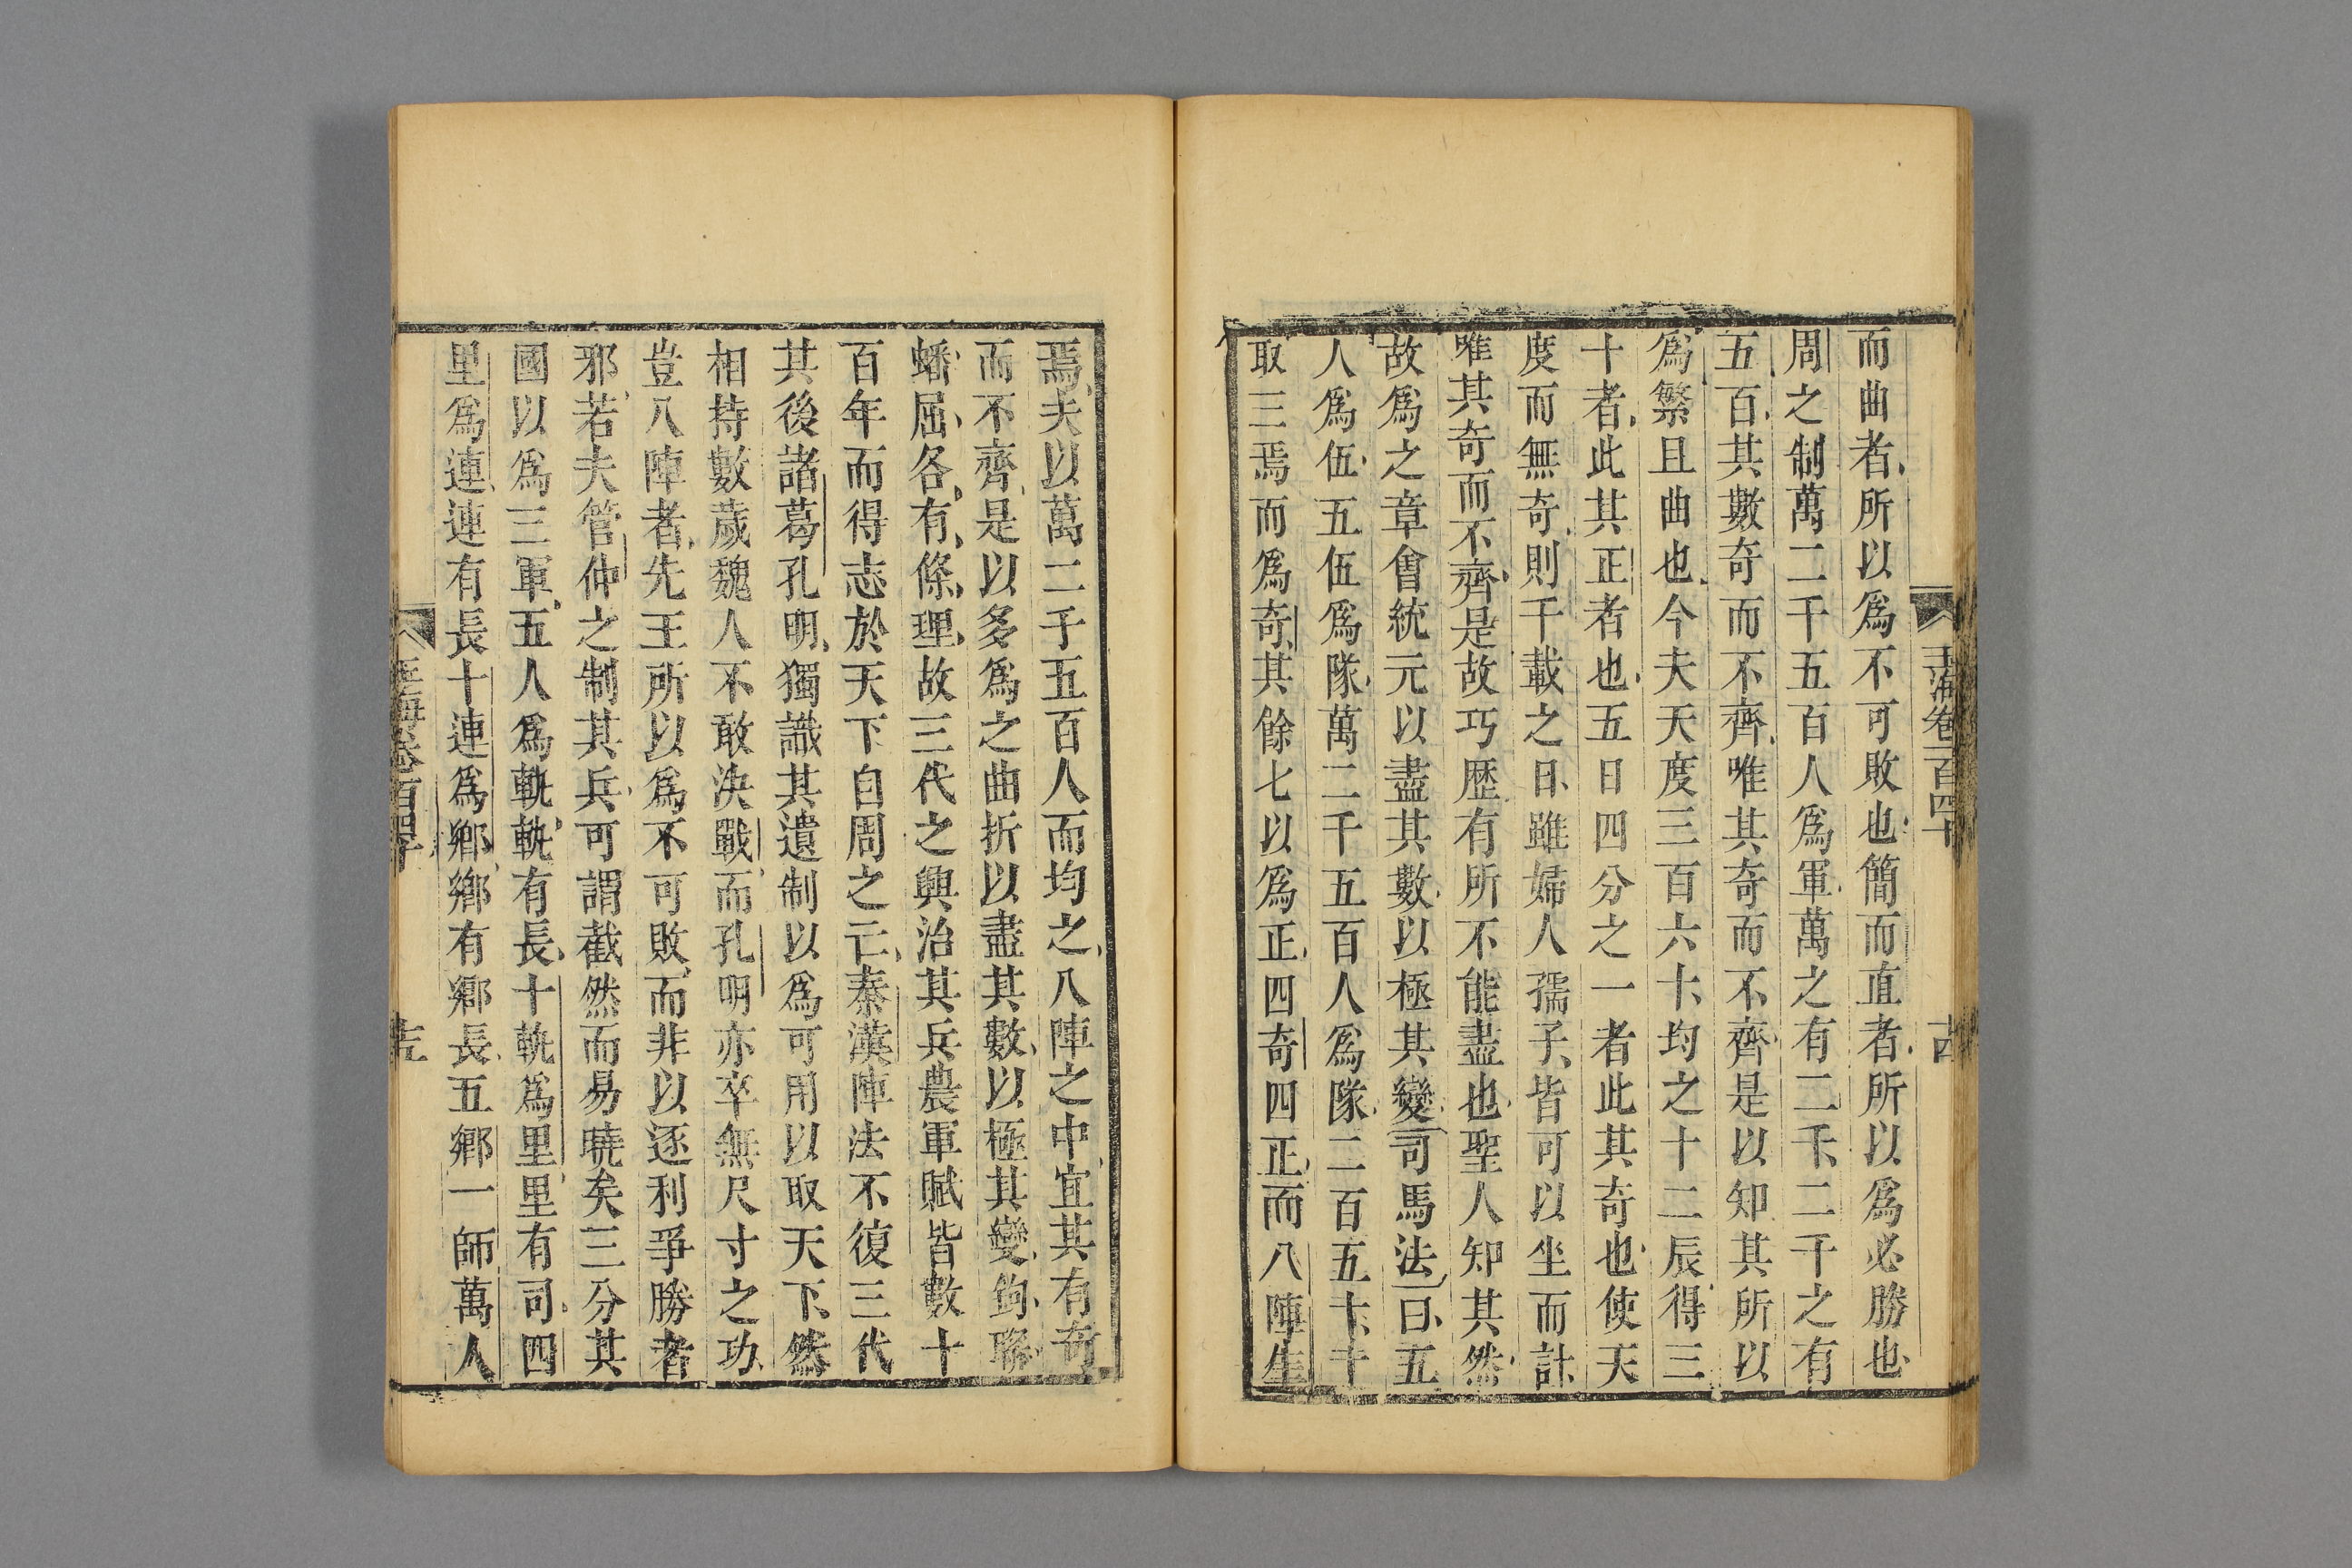 玉海卷一百四十
而曲者所以爲不可敗也簡而直者所以爲必勝也
周之制萬二千五百人爲軍萬之有二千二千之有
五百其數奇而不齊唯其奇而不齊是以知其所以
爲繁且曲也今夫天度三百六十均之十二辰得三
十者此其正者也五日四分之一者此其奇也使天
度而無奇則千載之日雖婦人孺子皆可以坐而計
唯其奇而不齊是故巧歷有所不能盡也聖人知其然
故爲之章會統元以盡其數以極其變司馬法曰五
人爲伍五伍爲隊萬二千五百人爲隊二百五十十
取三焉而爲奇其餘七以爲正四奇四正而八陣生
焉夫以萬二千五百人而均之八陣之中宜其有奇
而不齊是以多爲之曲折以盡其數以極其變鉤聯
蟠屈各有條理故三代之興治其兵農軍賦皆數十
百年而得志於天下自周之亡秦漢陣法不復三代
其後諸葛孔明獨識其遺制以爲可用以取天下然
相持數歲魏人不敢決戰而孔明亦卒無尺寸之功
豈八陣者先王所以爲不可敗而非以逐利爭勝者
邪若夫管仲之制其兵可謂截然而易曉矣三分其
國以爲三軍五人爲軌軌有長十軌爲里里有司四
里爲連連有長十連爲鄉鄉有鄉長五鄉一師萬人